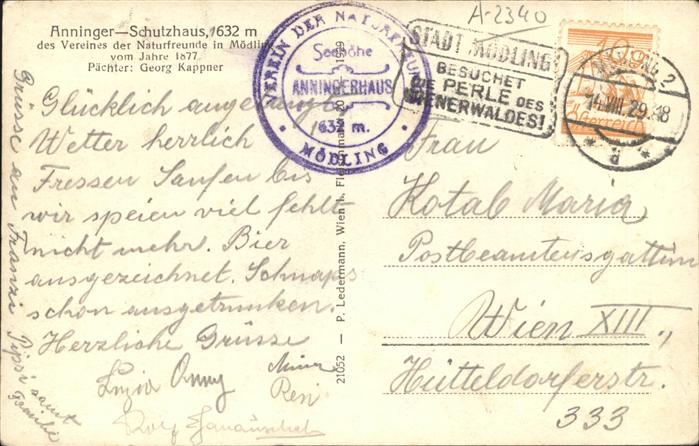 A-2340
Anninger—Schutzhaus, 1632 m
des Vereines der Naturfreunde in Mödling
vom Jahre 1877
Pächter: Georg Kappner
VEREIN DER NATURFREUNDE
Seehöhe
ANNINGERHAUS
632 m.
MÖDLING
STADT MÖDLING
BESUCHET
DIE PERLE DES
WIENERWALDES!
MÖDLING 2
14.VIII.29.18
Österreich
Glücklich angelangt
Wetter herrlich
Fressen Saufen bis
wir speien viel fehlt
nicht mehr. Bier
ausgezeichnet. Schnaps
schon ausgetrunken.
Herzliche Grüsse
Anny
Grüsse an Franzi Pippi samt
Familie
21052 — P. Ledermann, Wien
Frau
Kotab Maria
Postbeamtensgattin
Wien XIII.,
Hütteldorferstr.
333